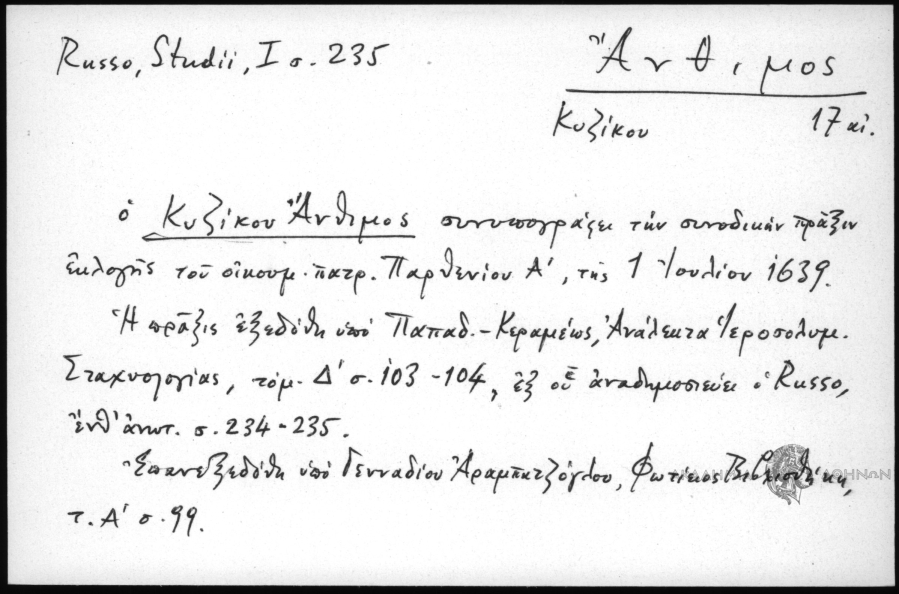 Russo, Studii, I σ. 235
Ἄνθιμος
Κυζίκου 17 αἰ.
ὁ Κυζίκου Ἄνθιμος συνυπογράφει τὴν συνοδικὴν πρᾶξιν
ἐκλογῆς τοῦ οἰκουμ. πατρ. Παρθενίου Α', τῆς 1 Ἰουλίου 1639.
Ἡ πρᾶξις ἐξεδόθη ὑπὸ Παπαδ.-Κεραμέως, Ἀνάλεκτα Ἱεροσολυμ.
Σταχυολογίας, τόμ. Δ' σ. 103-104, ἐξ οὗ ἀναδημοσιεύει ὁ Russo,
ἔνθ' ἀνωτ. σ. 234-235.
Ἐπανεξεδόθη ὑπὸ Γενναδίου Ἀραμπατζόγλου, Φωτίειος Βιβλιοθήκη,
τ. Α' σ. 99.